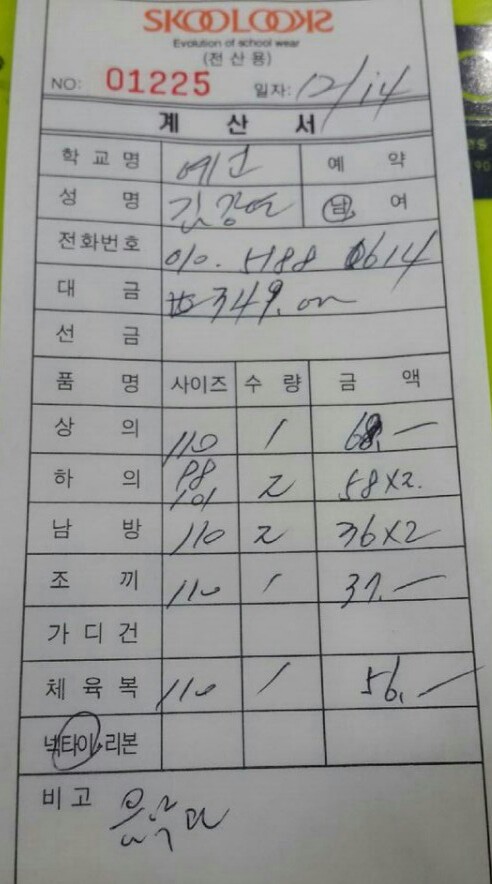 SKOOLOOKS
Evolution of school wear
(전산용)
NO: 01225 일자: 12/14
계 산 서
학교명 예고 예 약
성 명 김 남 여
전화번호 010. 5188 0614
대 금 ₩349.000
선 금
품 명 사이즈 수 량 금 액
상 의 110 1 68.—
하 의 98 101 2 58×2.
남 방 110 2 36×2
조 끼 110 1 37.—
가디건
체육복 110 1 56.—
넥타이,리본
비고 음악과